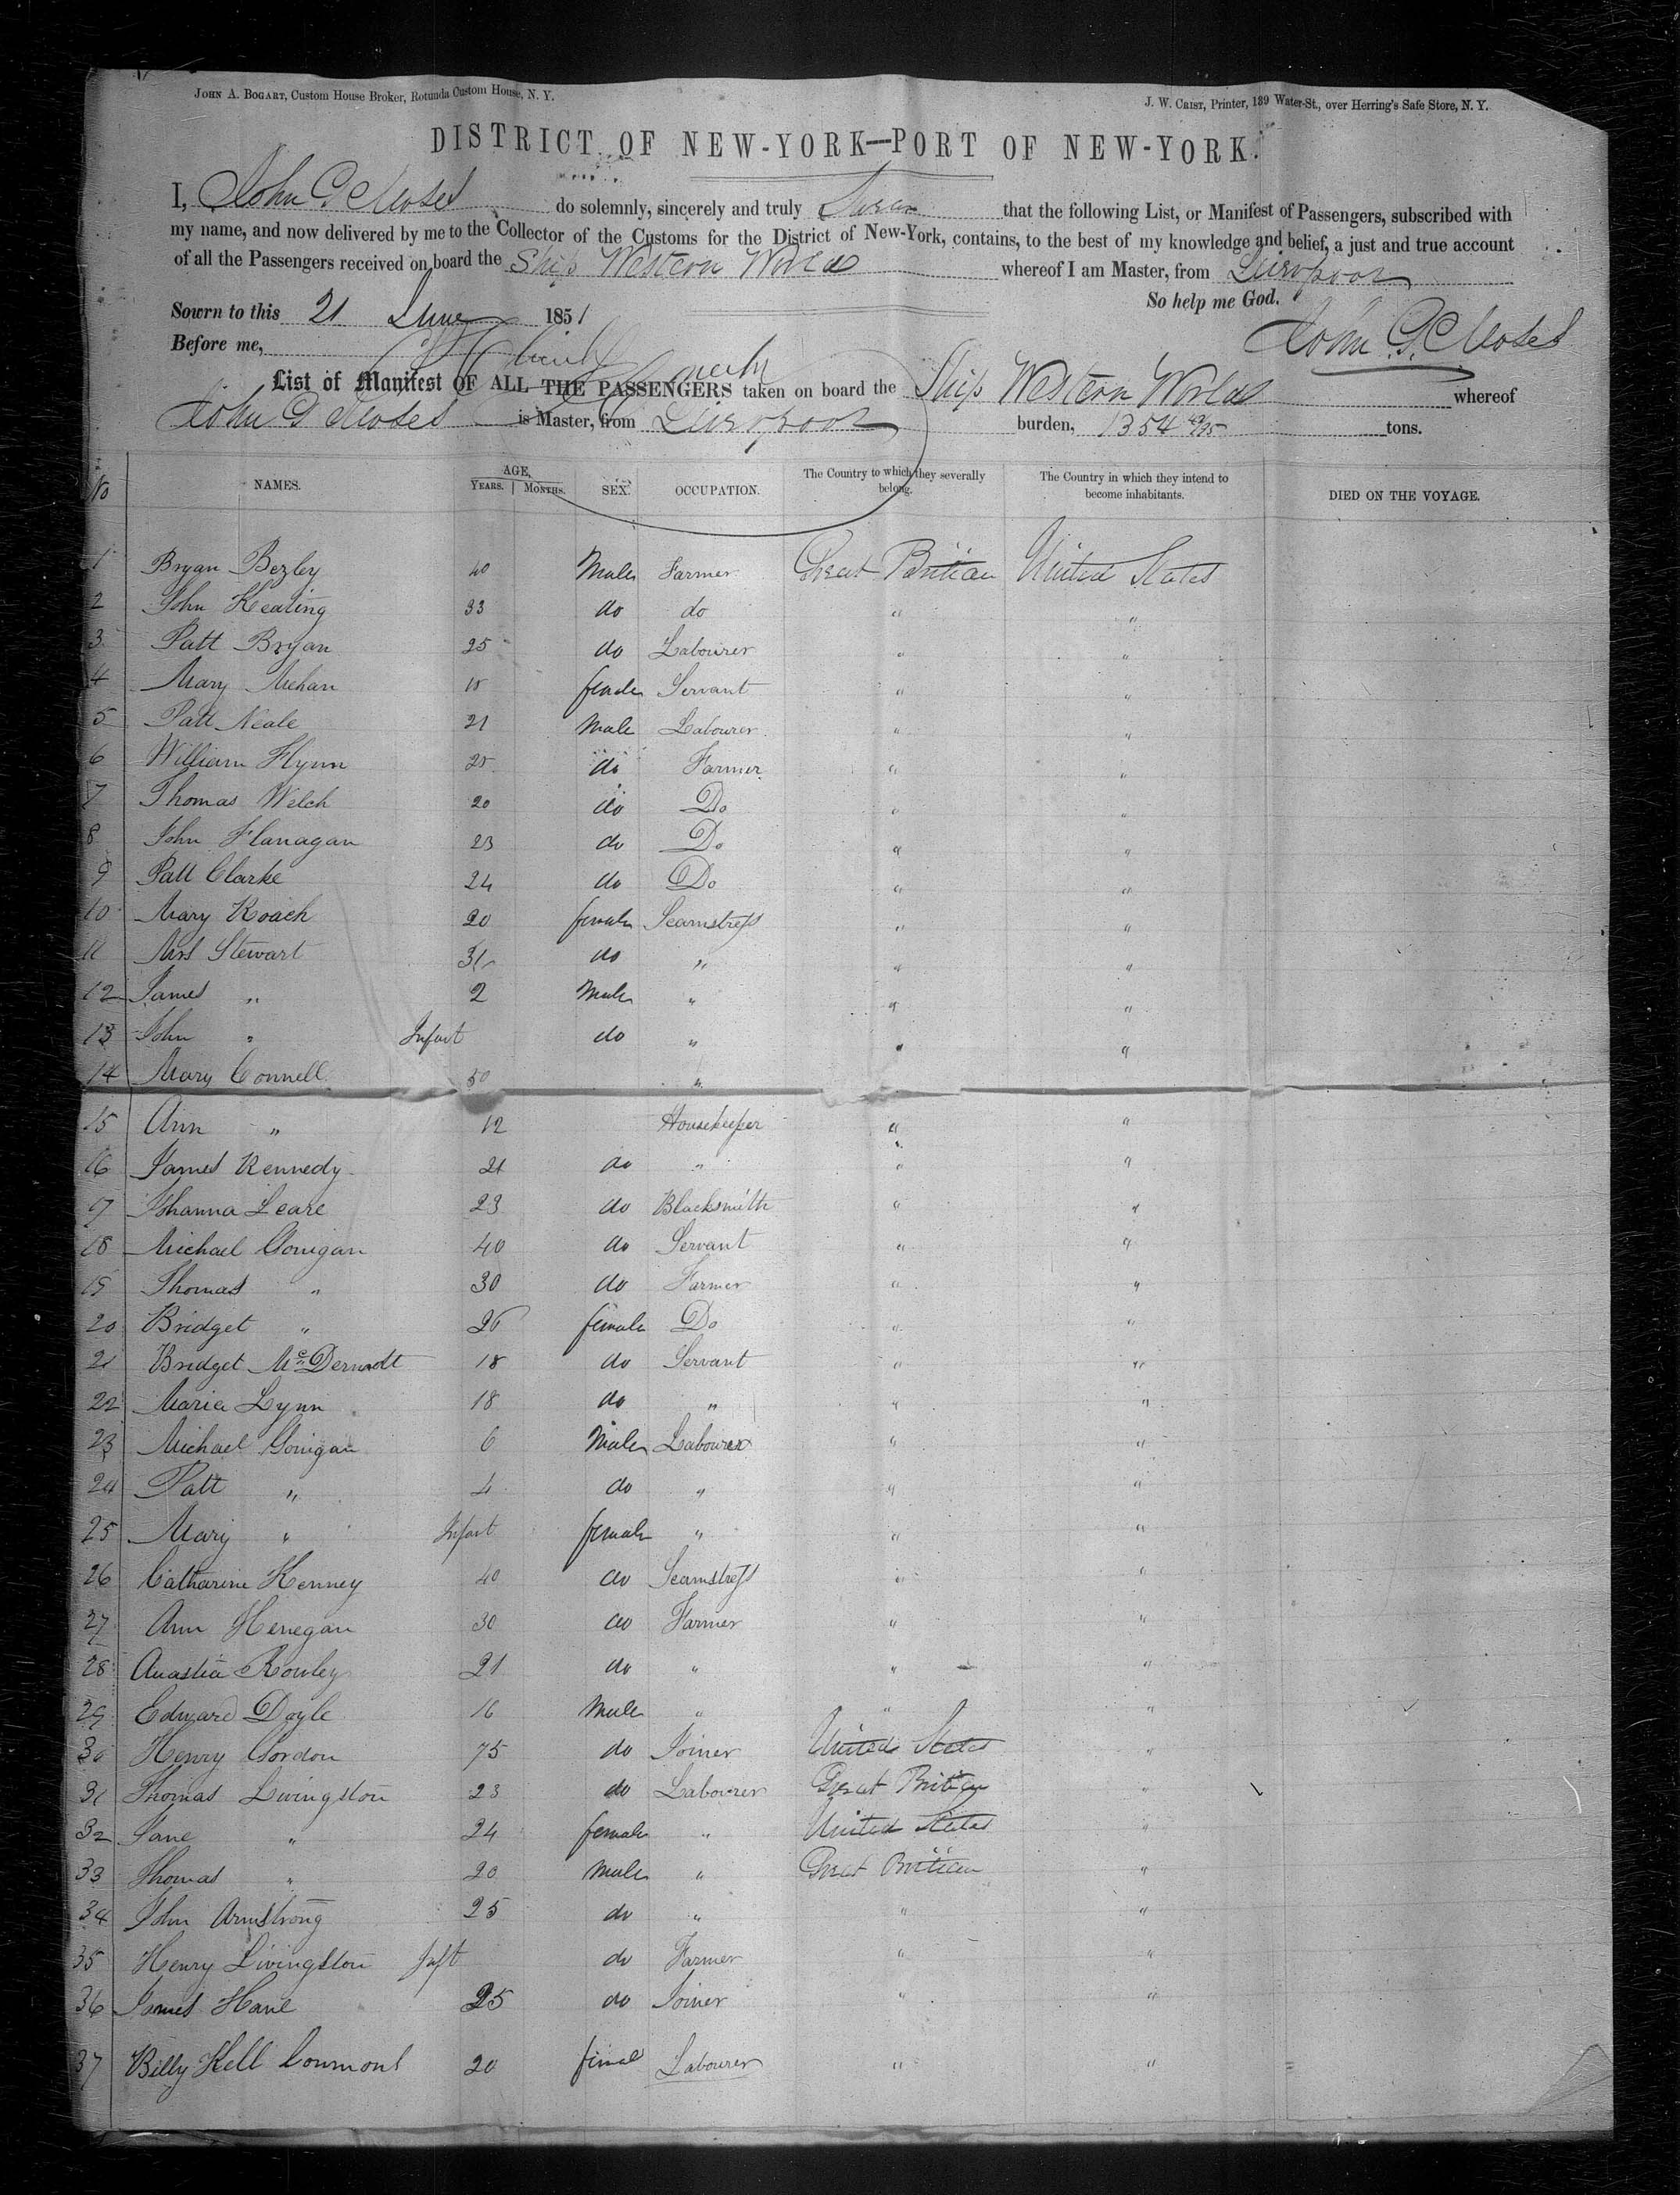 JOHN A. BOGART, Custom House Broker, Rotunda Custom House, N. Y.
J. W. CRIST, Printer, 139 Water-St., over Herring's Safe Store, N. Y.
DISTRICT OF NEW-YORK—PORT OF NEW-YORK.
I, John G. Moses do solemnly, sincerely and truly Swear that the following List, or Manifest of Passengers, subscribed with
my name, and now delivered by me to the Collector of the Customs for the District of New-York, contains, to the best of my knowledge and belief, a just and true account
of all the Passengers received on board the Ship Western World whereof I am Master, from Liverpool
So help me God.
Sowrn to this 21 June 1851
John G. Moses
Before me,
List of Manifest OF ALL THE PASSENGERS taken on board the Ship Western World whereof
John G Moses is Master, from Liverpool burden, 1354 49/95 tons.
No NAMES. AGE, YEARS. MONTHS. SEX. OCCUPATION. The Country to which they severally belong. The Country in which they intend to become inhabitants. DIED ON THE VOYAGE.
1 Bryan Bezley 40 Male Farmer Great Britian United States
2 John Keating 33 do do " "
3 Patt Bryan 25 do Labourer " "
4 Mary Mehan 18 female Servant " "
5 Patt Neale 21 Male Labourer " "
6 William Flynn 25 do Farmer " "
7 Thomas Welch 20 do Do " "
8 John Flanagan 23 do Do " "
9 Patt Clarke 24 do Do " "
10 Mary Roach 20 female Seamstress " "
11 Mrs Stewart 31 do " " "
12 James " 2 Male " " "
13 John " Infant do " " "
14 Mary Connell 50 "
15 Ann " 12 Housekeeper " "
16 James Kennedy 21 do " " "
17 Johanna Leare 23 do Blacksmith " "
18 Michael Gonigan 40 do Servant " "
19 Thomas " 30 do Farmer " "
20 Bridget " 26 female Do " "
21 Bridget McDermott 18 do Servant " "
22 Maria Lynn 18 do " " "
23 Michael Gonigan 6 Male Labourer " "
24 Patt " 4 do " " "
25 Mary " Infant female " " "
26 Catharine Kenney 40 do Seamstress " "
27 Ann Henegan 30 do Farmer " "
28 Anastia Rowley 21 do " " "
29 Edward Doyle 16 Male " " "
30 Henry Gordon 75 do Joiner United States "
31 Thomas Livingston 23 do Labourer Great Britian "
32 Jane " 24 female " United States "
33 Thomas " 20 Male " Great Britian "
34 John Armstrong 25 do " " "
35 Henry Livingston Inft do Farmer " "
36 James Hane 25 do Joiner " "
37 Billy Kell 20 fimal Labourer " "